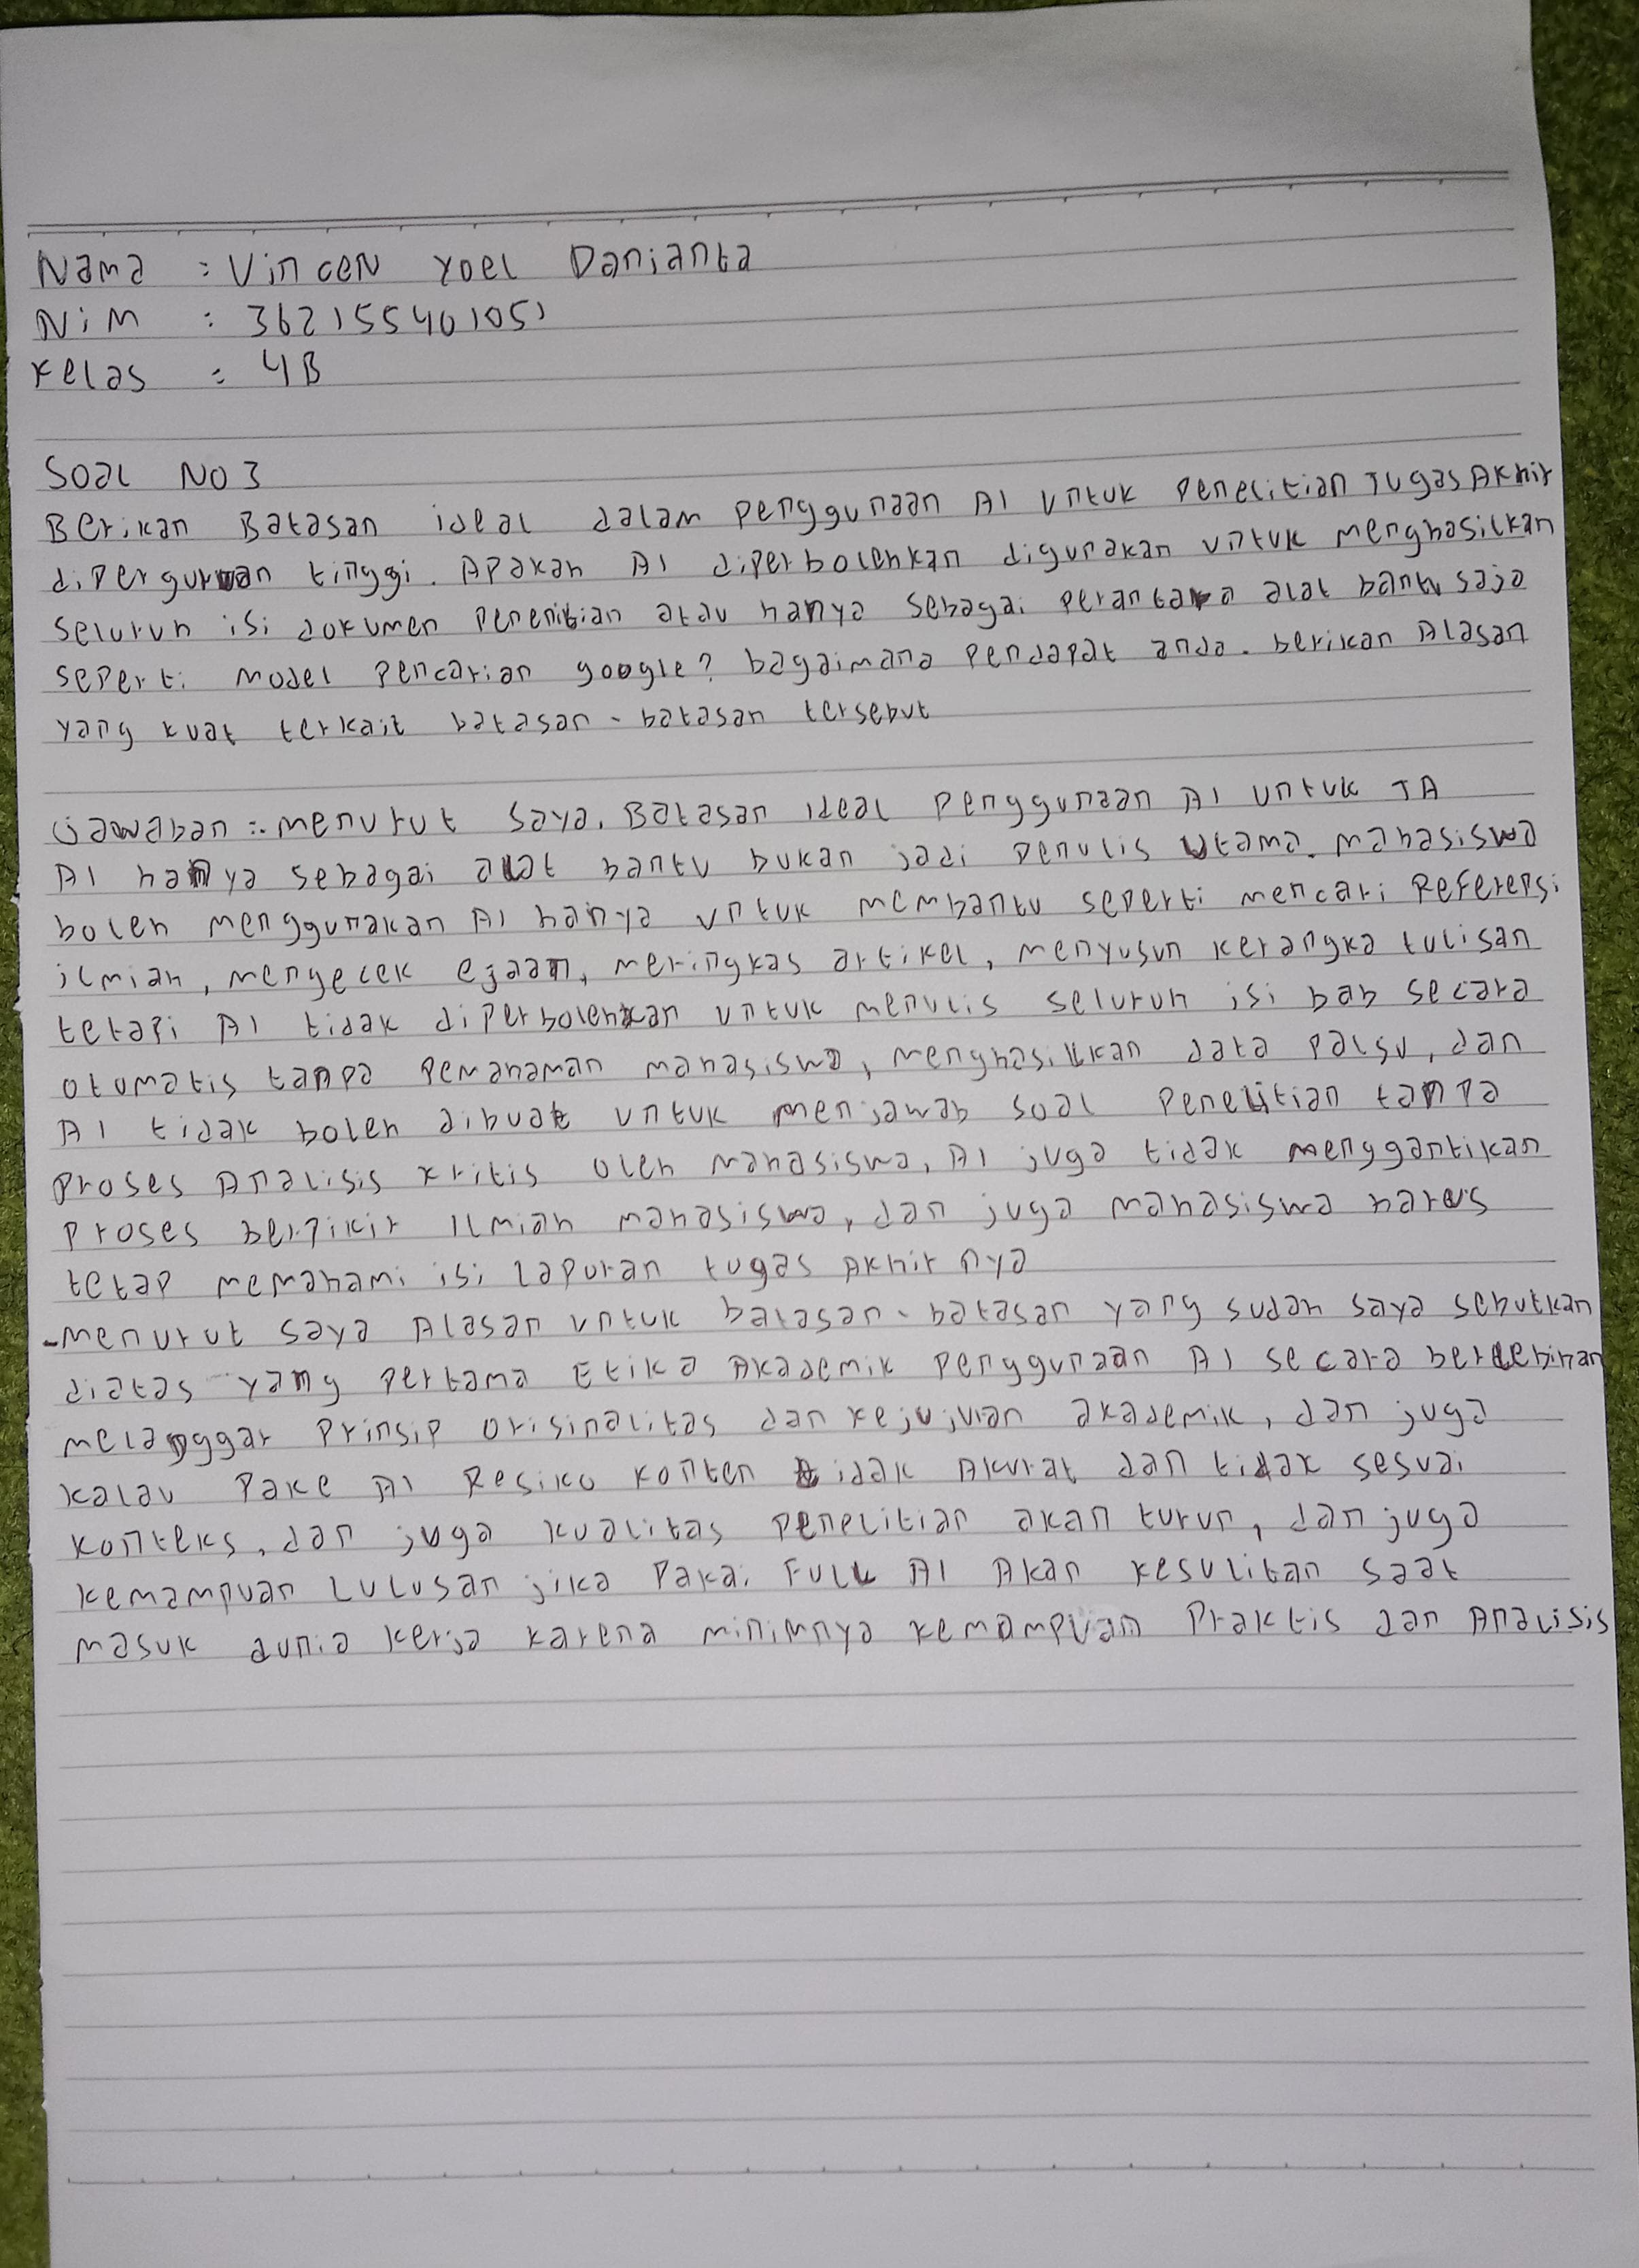 Nama : Vincen Yoel Danianta
NiM : 362155401051
Kelas : 4B
Soal No 3
Berikan Batasan ideal dalam penggunaan AI untuk penelitian Tugas Akhir
diperguruan tinggi. Apakah AI diperbolehkan digunakan untuk menghasilkan
seluruh isi dokumen penenitian atau hanya sebagai perantara alat bantu saja
seperti model pencarian google? bagaimana pendapat anda. berikan Alasan
yang kuat terkait batasan-batasan tersebut
Jawaban :. menurut saya. Batasan ideal penggunaan AI untuk TA
AI hanya sebagai alat bantu bukan jadi penulis utama. mahasiswa
boleh menggunakan AI hanya untuk membantu seperti mencari Referensi
ilmiah, mengecek ejaan, meringkas artikel, menyusun kerangka tulisan
tetapi AI tidak diperbolehkan untuk menulis seluruh isi bab secara
otomatis tanpa pemahaman mahasiswa, menghasilkan data palsu, dan
AI tidak boleh dibuat untuk menjawab soal penelitian tanpa
proses Analisis kritis oleh mahasiswa, AI juga tidak menggantikan
proses berpikir ilmiah mahasiswa, dan juga mahasiswa harus
tetap memahami isi laporan tugas Akhir nya
-menurut saya Alasan untuk batasan-batasan yang sudah saya sebutkan
diatas yang pertama Etika Akademik penggunaan AI secara berlebihan
melanggar prinsip orisinalitas dan kejujuran akademik, dan juga
kalau pake AI Resiko konten tidak Akurat dan tidak sesuai
konteks, dan juga kualitas penelitian akan turun, dan juga
kemampuan lulusan jika pakai Full AI Akan kesulitan saat
masuk dunia kerja karena minimnya kemampuan praktis dan Analisis